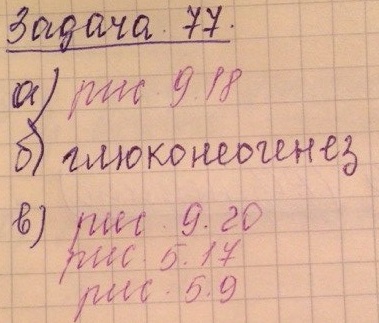 Задача. 77.
а) рис. 9.18
б) глюконеогенез
в) рис. 9.20
рис. 5.17
рис. 5.9